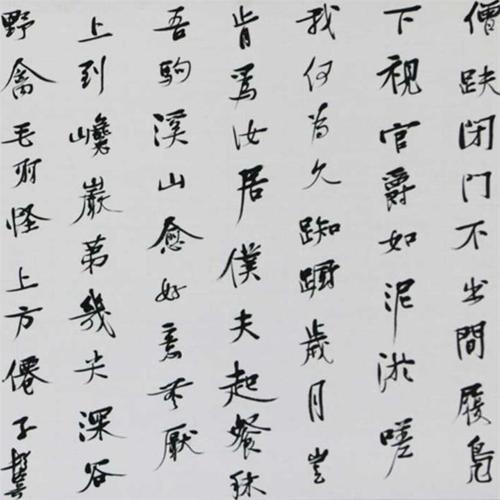 僧趺閉門不出間履舄
下視官爵如泥淤嗟
我何為久踟躕歲月豈
肯為汝居僕夫起餐秣
吾駒溪山愈好意無厭
上到巉巖第幾尖深谷
野禽毛羽怪上方僊子鬢